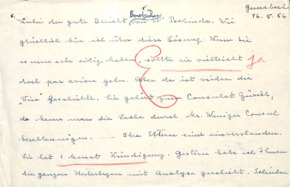 Gunsbach
16.5.56
Besten
der gute Bericht Pestinda. Wie
glücklich bin ich über diese Lösung. Wenn sie
es nun sehr eilig haben, sollte sie vielleicht Ja
doch par avion gehn. Aber da ist wieder die
Visa Geschichte. Sie gehört zum Consulat Zürich,
da kann man die Sache durch
beschleunigen. — Ihre Eltern sind einverstanden.
Sie hat 1 Monat Kündigung. Gestern habe ich Ihnen
die ganzen Unterlagen mit Analyse geschickt.